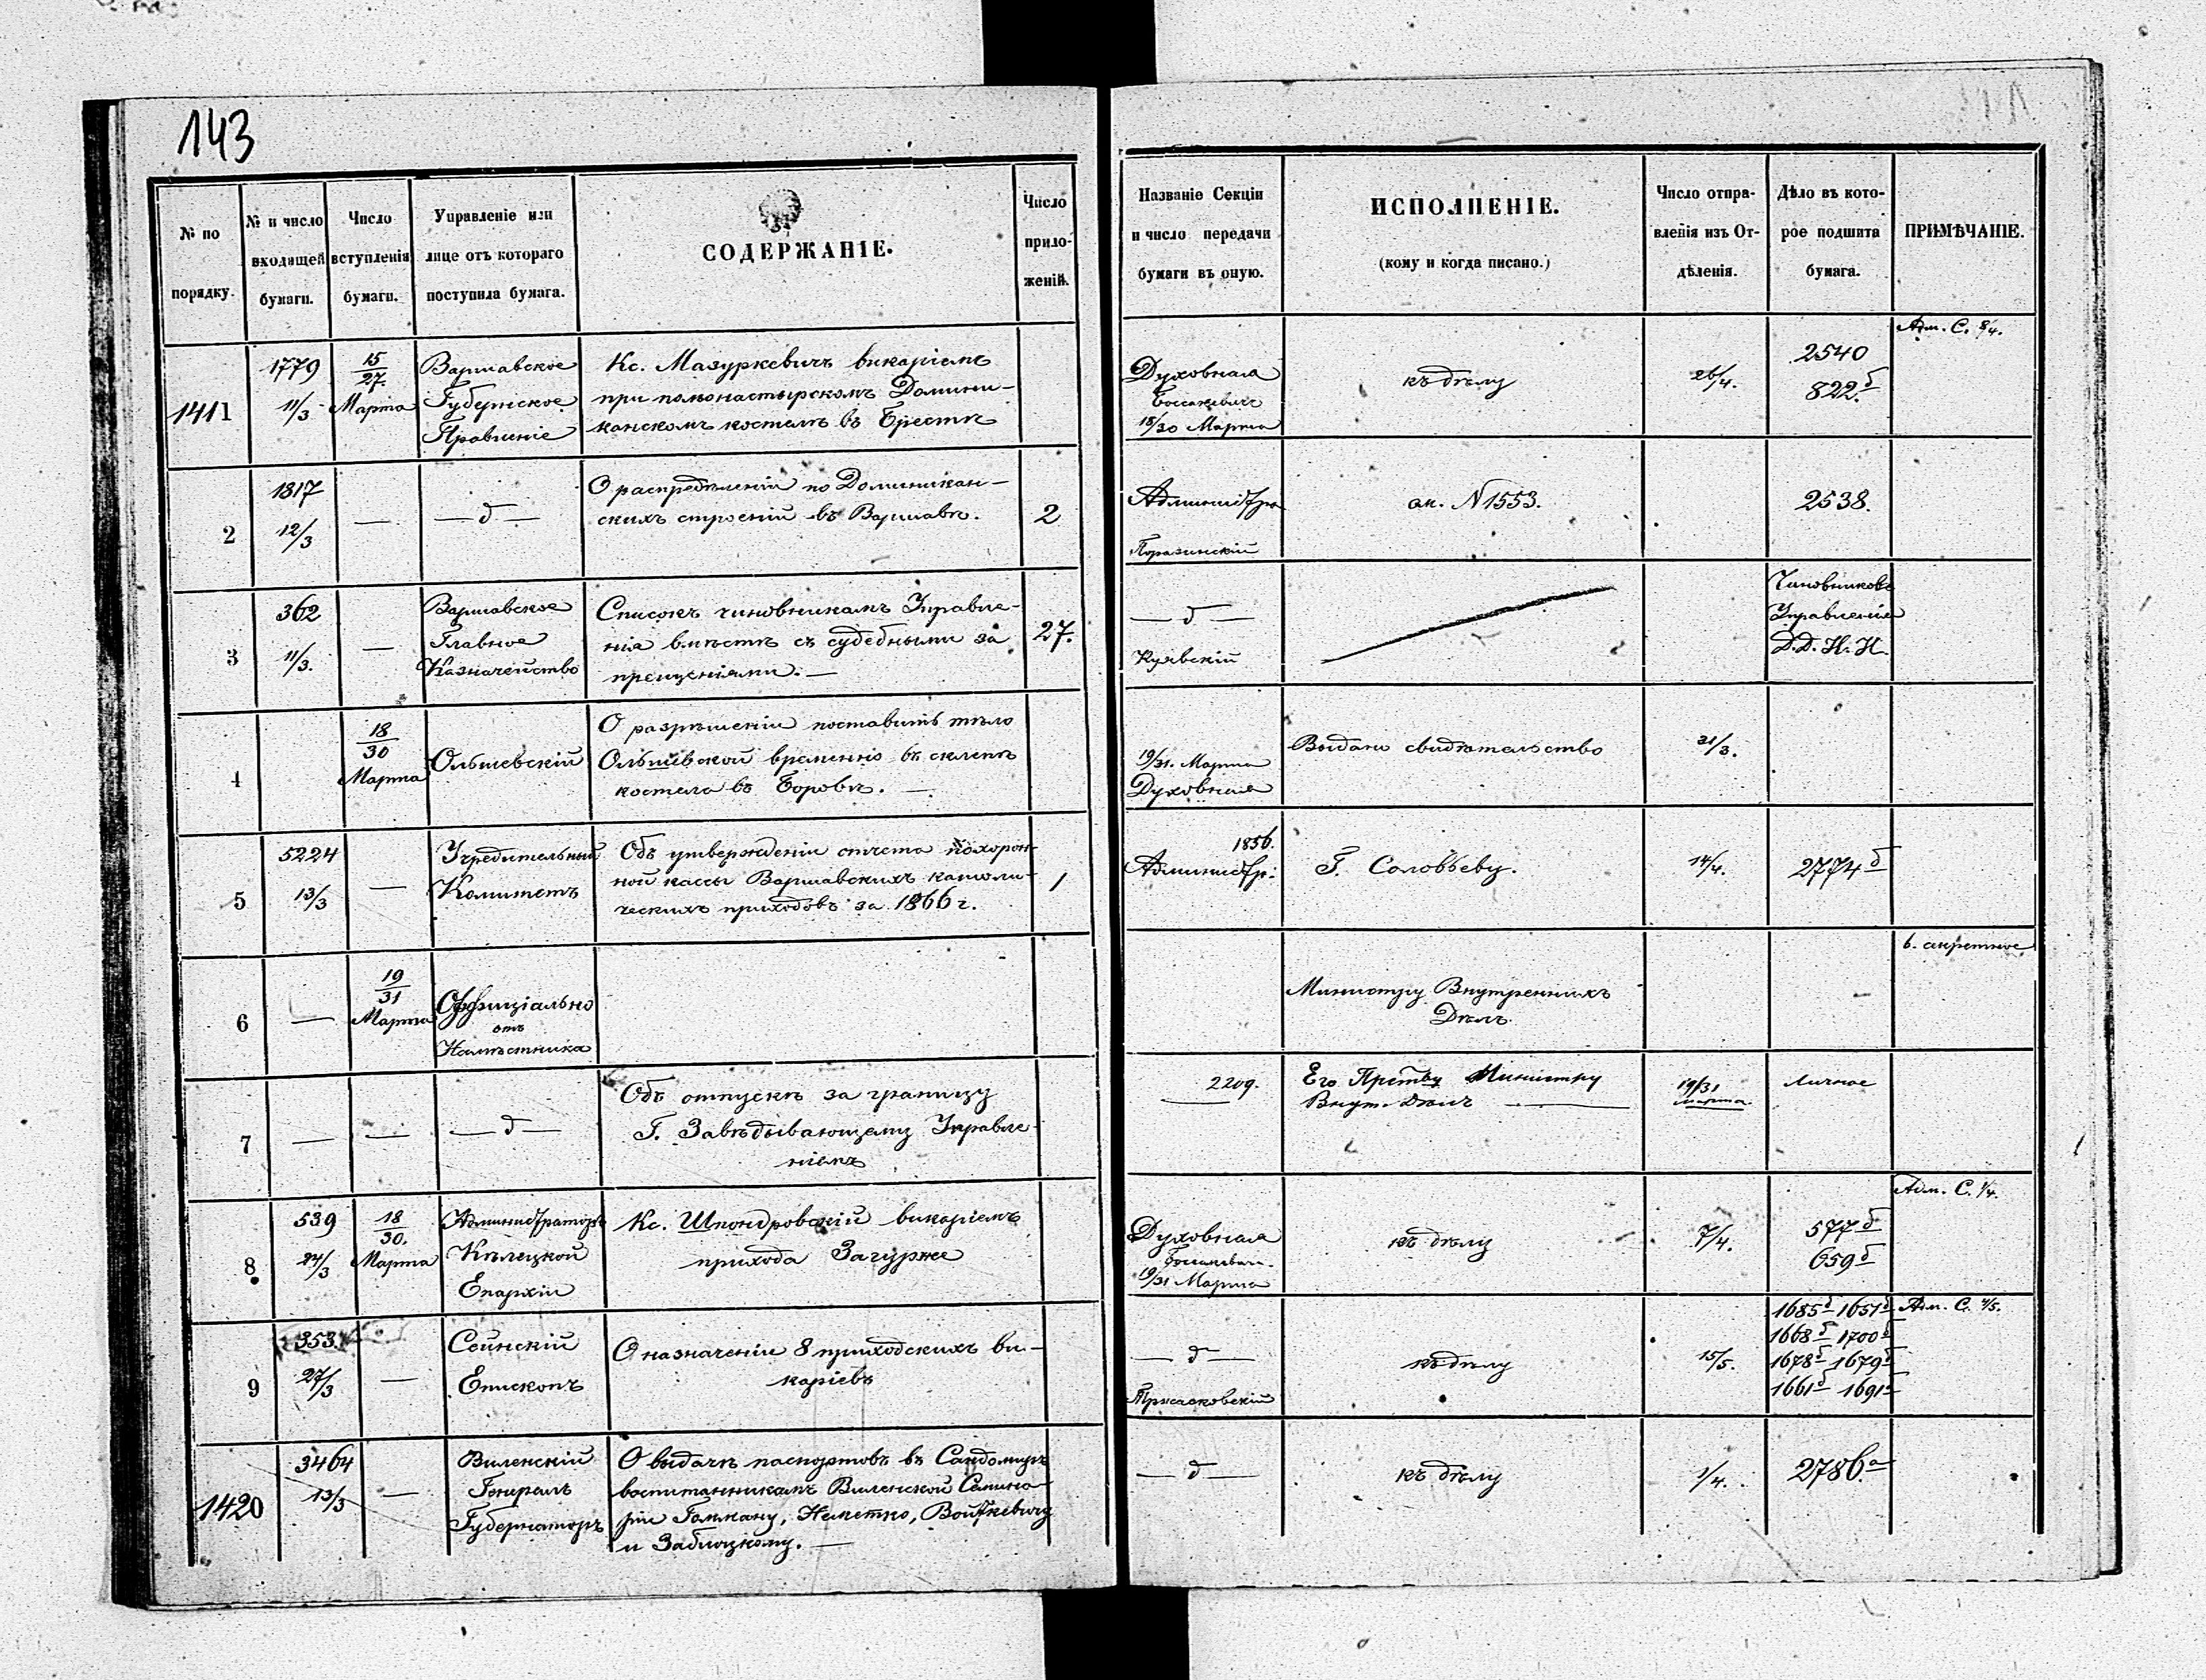 143
№ по порядку.
№ и число входящей бумаги.
Число вступленія бумаги.
Управленіе или лице отъ котораго поступила бумага.
СОДЕРЖАНІЕ.
Число приложеній.
Названіе Секціи и число передачи бумаги въ оную.
ИСПОЛНЕНІЕ.
(кому и когда писано.)
Число отправленія изъ Отдѣленія.
Дѣло въ которое подшита бумага.
ПРИМѢЧАНІЕ.
1411
1779
11/3
15/27.
Марта
Варшавское
Губернское
Правленіе
Кс. Мазуркевичъ викаріемъ
при помонастырскомъ Домини-
канскомъ костелѣ въ Брестѣ
Духовная
18/30 Марта
къ дѣлу
26/4.
2540
822б
Адм. С. 8/4.
2
1817
12/3
—
— д —
О распредѣленіи по Доминикан-
скихъ строеній въ Варшавѣ.
2
Администра
ак. N 1553.
2538.
3
362
11/3.
—
Варшавское
Главное
Казначейство
Списокъ чиновникамъ Управле-
нія вмѣстѣ съ судебными за
прещеніями. —
27.
— д —
Куявскій
Чиновниковъ
Управленія
Д.Д. И. И.
4
18/30
Марта
Ольшевскій
О разрѣшеніи поставить тѣло
Ольшевской временно въ склепѣ
костела въ Боровѣ. —
19/31. Марта
Духовная
Выдано свидѣтельство
31/3.
5
5224
13/3
—
Учредительный
Комитетъ
Объ утвержденіи отчета похорон-
ной кассы Варшавскихъ католи-
ческихъ приходовъ за 1866 г.
1
1856.
Администр:
Г. Соловьеву.
14/4.
2774б
6
—
19/31
Марта
Оффиціально
отъ
Намѣстника
Министру Внутреннихъ
Дѣлъ.
—
в. секретное
7
—
—
— д —
Объ отпускѣ за границу
Г. Завѣдывающему Управле-
ніемъ
2209.
Его Прству Министру
Внут. Дѣлъ —
19/31
Марта
Личное
8
539
24/3
18/30.
Марта
Администраторъ
Кѣлецкой
Епархіи
Кс. Шпондровскій викаріемъ
прихода Загурже
Духовная
19/31 Марта
къ дѣлу
7/4.
577б
659б
Адм. С. 1/4.
9
353.
27/3
—
Сейнскій
Епископъ
О назначеніи 8 приходскихъ ви-
каріевъ
— д —
къ дѣлу
15/5.
1685б 1651б
1668б 1700б
1678б 1679б
1661б 1691б
Адм. С. 4/5.
1420
3464
13/3
—
Виленскій
Генералъ
Губернаторъ
О выдачѣ паспортовъ въ Сандомиръ
воспитанникамъ Виленской Семина-
ріи Гомману, Неметко, Войткевичу
и Заблоцкому. —
— д —
къ дѣлу
1/4.
2786а